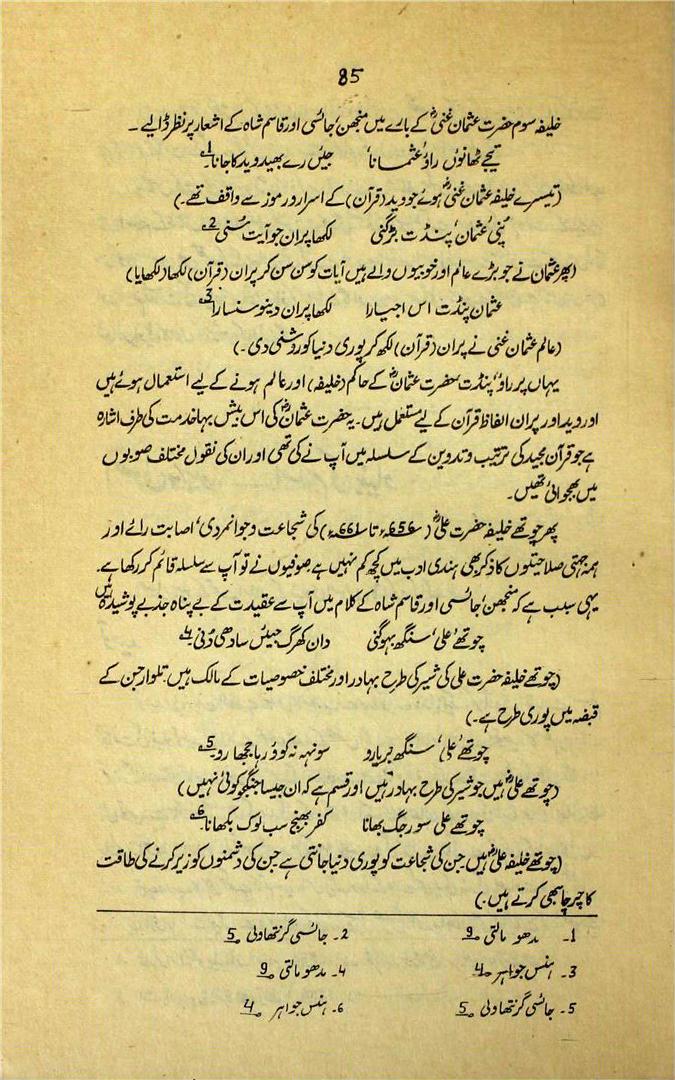 85
خلیفہ سوم حضرت عثمان غنیؓ کے بارے میں منجھن، جائسی اور قاسم شاہ کے اشعار پر نظر ڈالیے۔
تیجے ٹھانوں راؤ عثمانا جیٔں رے بھید وید کا جانا 1ـ
(تیسرے خلیفہ عثمان غنیؓ ہوئے جو وید (قرآن) کے اسرار و رموز سے واقف تھے۔)
پُنی عثمان پنڈت بڑگنی لکھا پران جو آیت سُنی 2ـ
(پھر عثمان نے جو بڑے عالم اور خوبیوں والے ہیں آیات کو سن سن کر پران (قرآن) لکھا (لکھایا)
عثمان پنڈت اس اجیارا لکھا پران دینو سنسارا 3ـ
(عالم عثمان غنی نے پران (قرآن) لکھ کر پوری دنیا کو روشنی دی۔)
یہاں پر راؤ، پنڈت حضرت عثمانؓ کے حاکم (خلیفہ) اور عالم ہونے کے لیے استعمال ہوئے ہیں
اور وید اور پران الفاظ قرآن کے لیے مستعمل ہیں۔ یہ حضرت عثمانؓ کی اس بیش بہا خدمت کی طرف اشارہ
ہے جو قرآن مجید کی ترتیب و تدوین کے سلسلہ میں آپ نے کی تھی اور ان کی نقول مختلف صوبوں
میں بھجوائی تھیں۔
پھر چوتھے خلیفہ حضرت علیؓ (656ء تا 661ء) کی شجاعت و جوانمردی، اصابت رائے اور
ہمہ جہتی صلاحیتوں کا ذکر بھی ہندی ادب میں کچھ کم نہیں ہے صوفیوں نے تو آپ سے سلسلہ قائم کر رکھا ہے۔
یہی سبب ہے کہ منجھن، جائسی اور قاسم شاہ کے کلام میں آپ سے عقیدت کے بے پناہ جذبے پوشیدہ ہیں
چوتھے علی، سنگھ بہوگنی دان کھرگ جیئں سادھی دُنی 4ـ
(چوتھے خلیفہ حضرت علی کی شیر کی طرح بہادر اور مختلف خصوصیات کے مالک ہیں۔ تلوار جن کے
قبضہ میں پوری طرح ہے۔)
چوتھے علی، سنگھ بریارو سونہہ نہ کوؤ رہا جھجھارو 5ـ
(چوتھے علیؓ ہیں جو شیر کی طرح بہادر ہیں اور قسم ہے کہ ان جیسا جنگجو کوئی نہیں)
چوتھے علی سور جگ بھانا کفر بھنج سب لوک بکھانا 6ـ
(چوتھے خلیفہ علیؓ ہیں جن کی شجاعت کو پوری دنیا جانتی ہے جن کی دشمنوں کو زیر کرنے کی طاقت
کا چرچا سبھی کرتے ہیں۔)
1۔ مدھو مالتی 9 2۔ جائسی گرنتھاولی 5
3۔ ہنس جواہر 4 4۔ مدھو مالتی 9
5۔ جائسی گرنتھاولی 5 6۔ ہنس جواہر 4